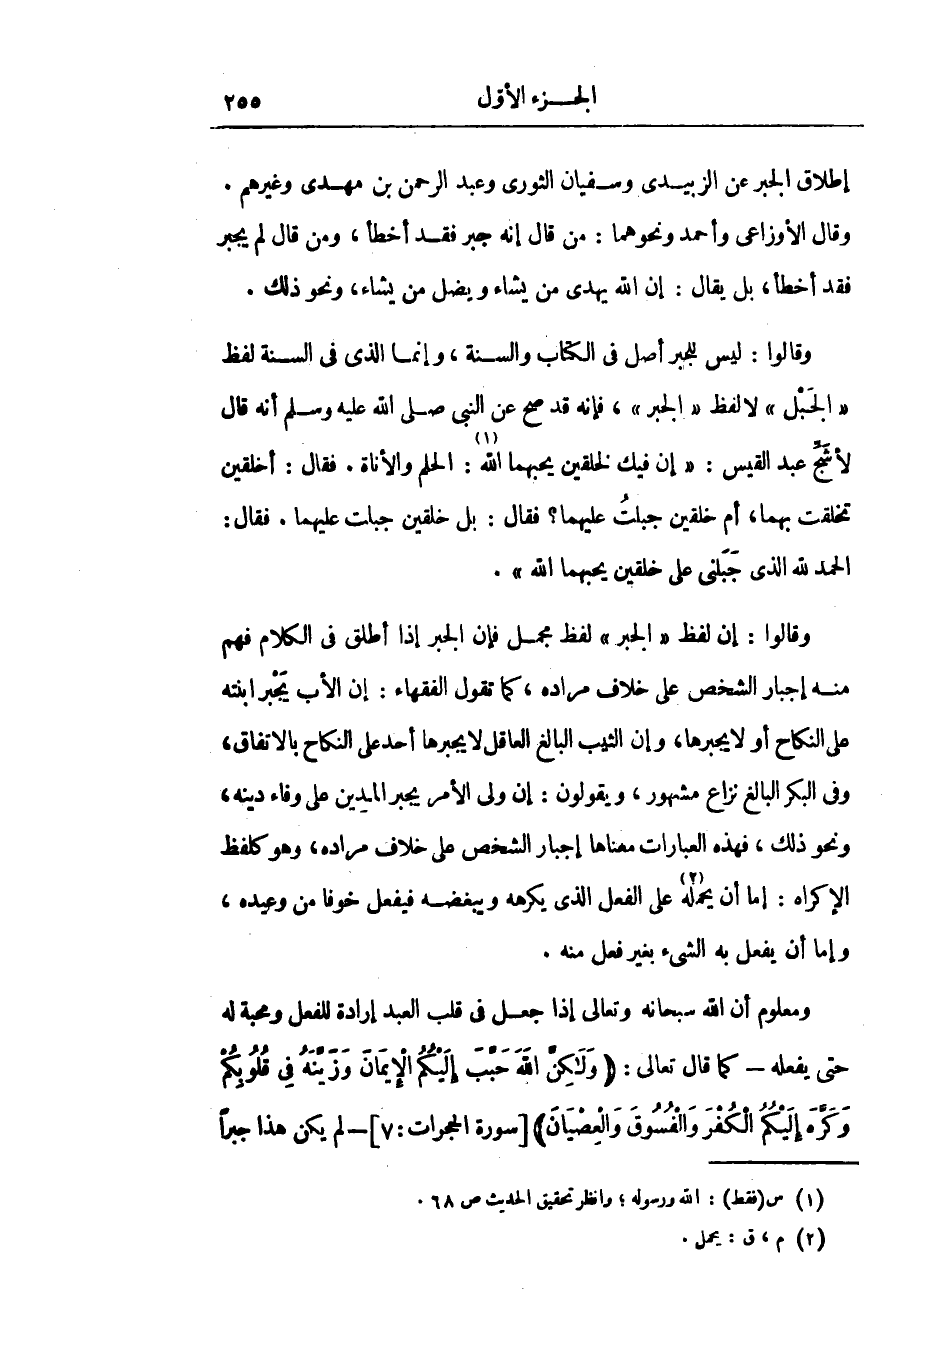 الجـزء الأول ٢٥٥
إطلاق الجبر عن الزبيـدى وسـفيان الثورى وعبد الرحمن بن مهـدى وغيرهم .
وقال الأوزاعى وأحمد ونحوهما : من قال إنه جبر فقـد أخطأ ، ومن قال لم يجبر
فقد أخطأ، بل يقال : إن الله يهدى من يشاء ويضل من يشاء، ونحو ذلك .
وقالوا : ليس للجبر أصل فى الكتاب والسـنة ، وإنمـا الذى فى السـنة لفظ
« الجَبْل » لا لفظ « الجبر » ، فإنه قد صح عن النبى صـلى الله عليه وسـلم أنه قال
لأشَجّ عبد القيس : « إن فيك لخلقين يحبهما الله (١) : الحلم والأناة . فقال : أخلقين
تخلقت بهما، أم خلقين جبلتُ عليهما؟ فقال : بل خلقين جبلت عليهما . فقال :
الحمد لله الذى جَبَلنى على خلقين يحبهما الله » .
وقالوا : إن لفظ « الجبر » لفظ مجمـل فإن الجبر إذا أطلق فى الكلام فهم
منـه إجبار الشخص على خلاف مراده ، كما تقول الفقهاء : إن الأب يَجْبر ابنته
على النكاح أو لا يجبرها، وإن الثيب البالغ العاقل لا يجبرها أحد على النكاح بالاتفاق،
وفى البكر البالغ نزاع مشهور ، ويقولون : إن ولى الأمر يجبر المدين على وفاء دينه ،
ونحو ذلك ، فهذه العبارات معناها إجبار الشخص على خلاف مراده، وهو كلفظ
الإكراه : إما أن يحمله (٢) على الفعل الذى يكرهه ويبغضـه فيفعل خوفا من وعيده ،
وإما أن يفعل به الشىء بغير فعل منه .
ومعلوم أن الله سبحانه وتعالى إذا جعـل فى قلب العبد إرادة للفعل ومحبة له
حتى يفعله – كما قال تعالى : ﴿ وَلَـٰكِنَّ اللَّهَ حَبَّبَ إِلَيْكُمُ الْإِيمَانَ وَزَيَّنَهُ فِى قُلُوبِكُمْ
وَكَرَّهَ إِلَيْكُمُ الْكُفْرَ وَالْفُسُوقَ وَالْعِصْيَانَ﴾ [سورة الحجرات : ٧] – لم يكن هذا جبراً
(١) س (فقط) : الله ورسوله ؛ وانظر تحقيق الحديث ص ٦٨ .
(٢) م ، ق : يحمل .